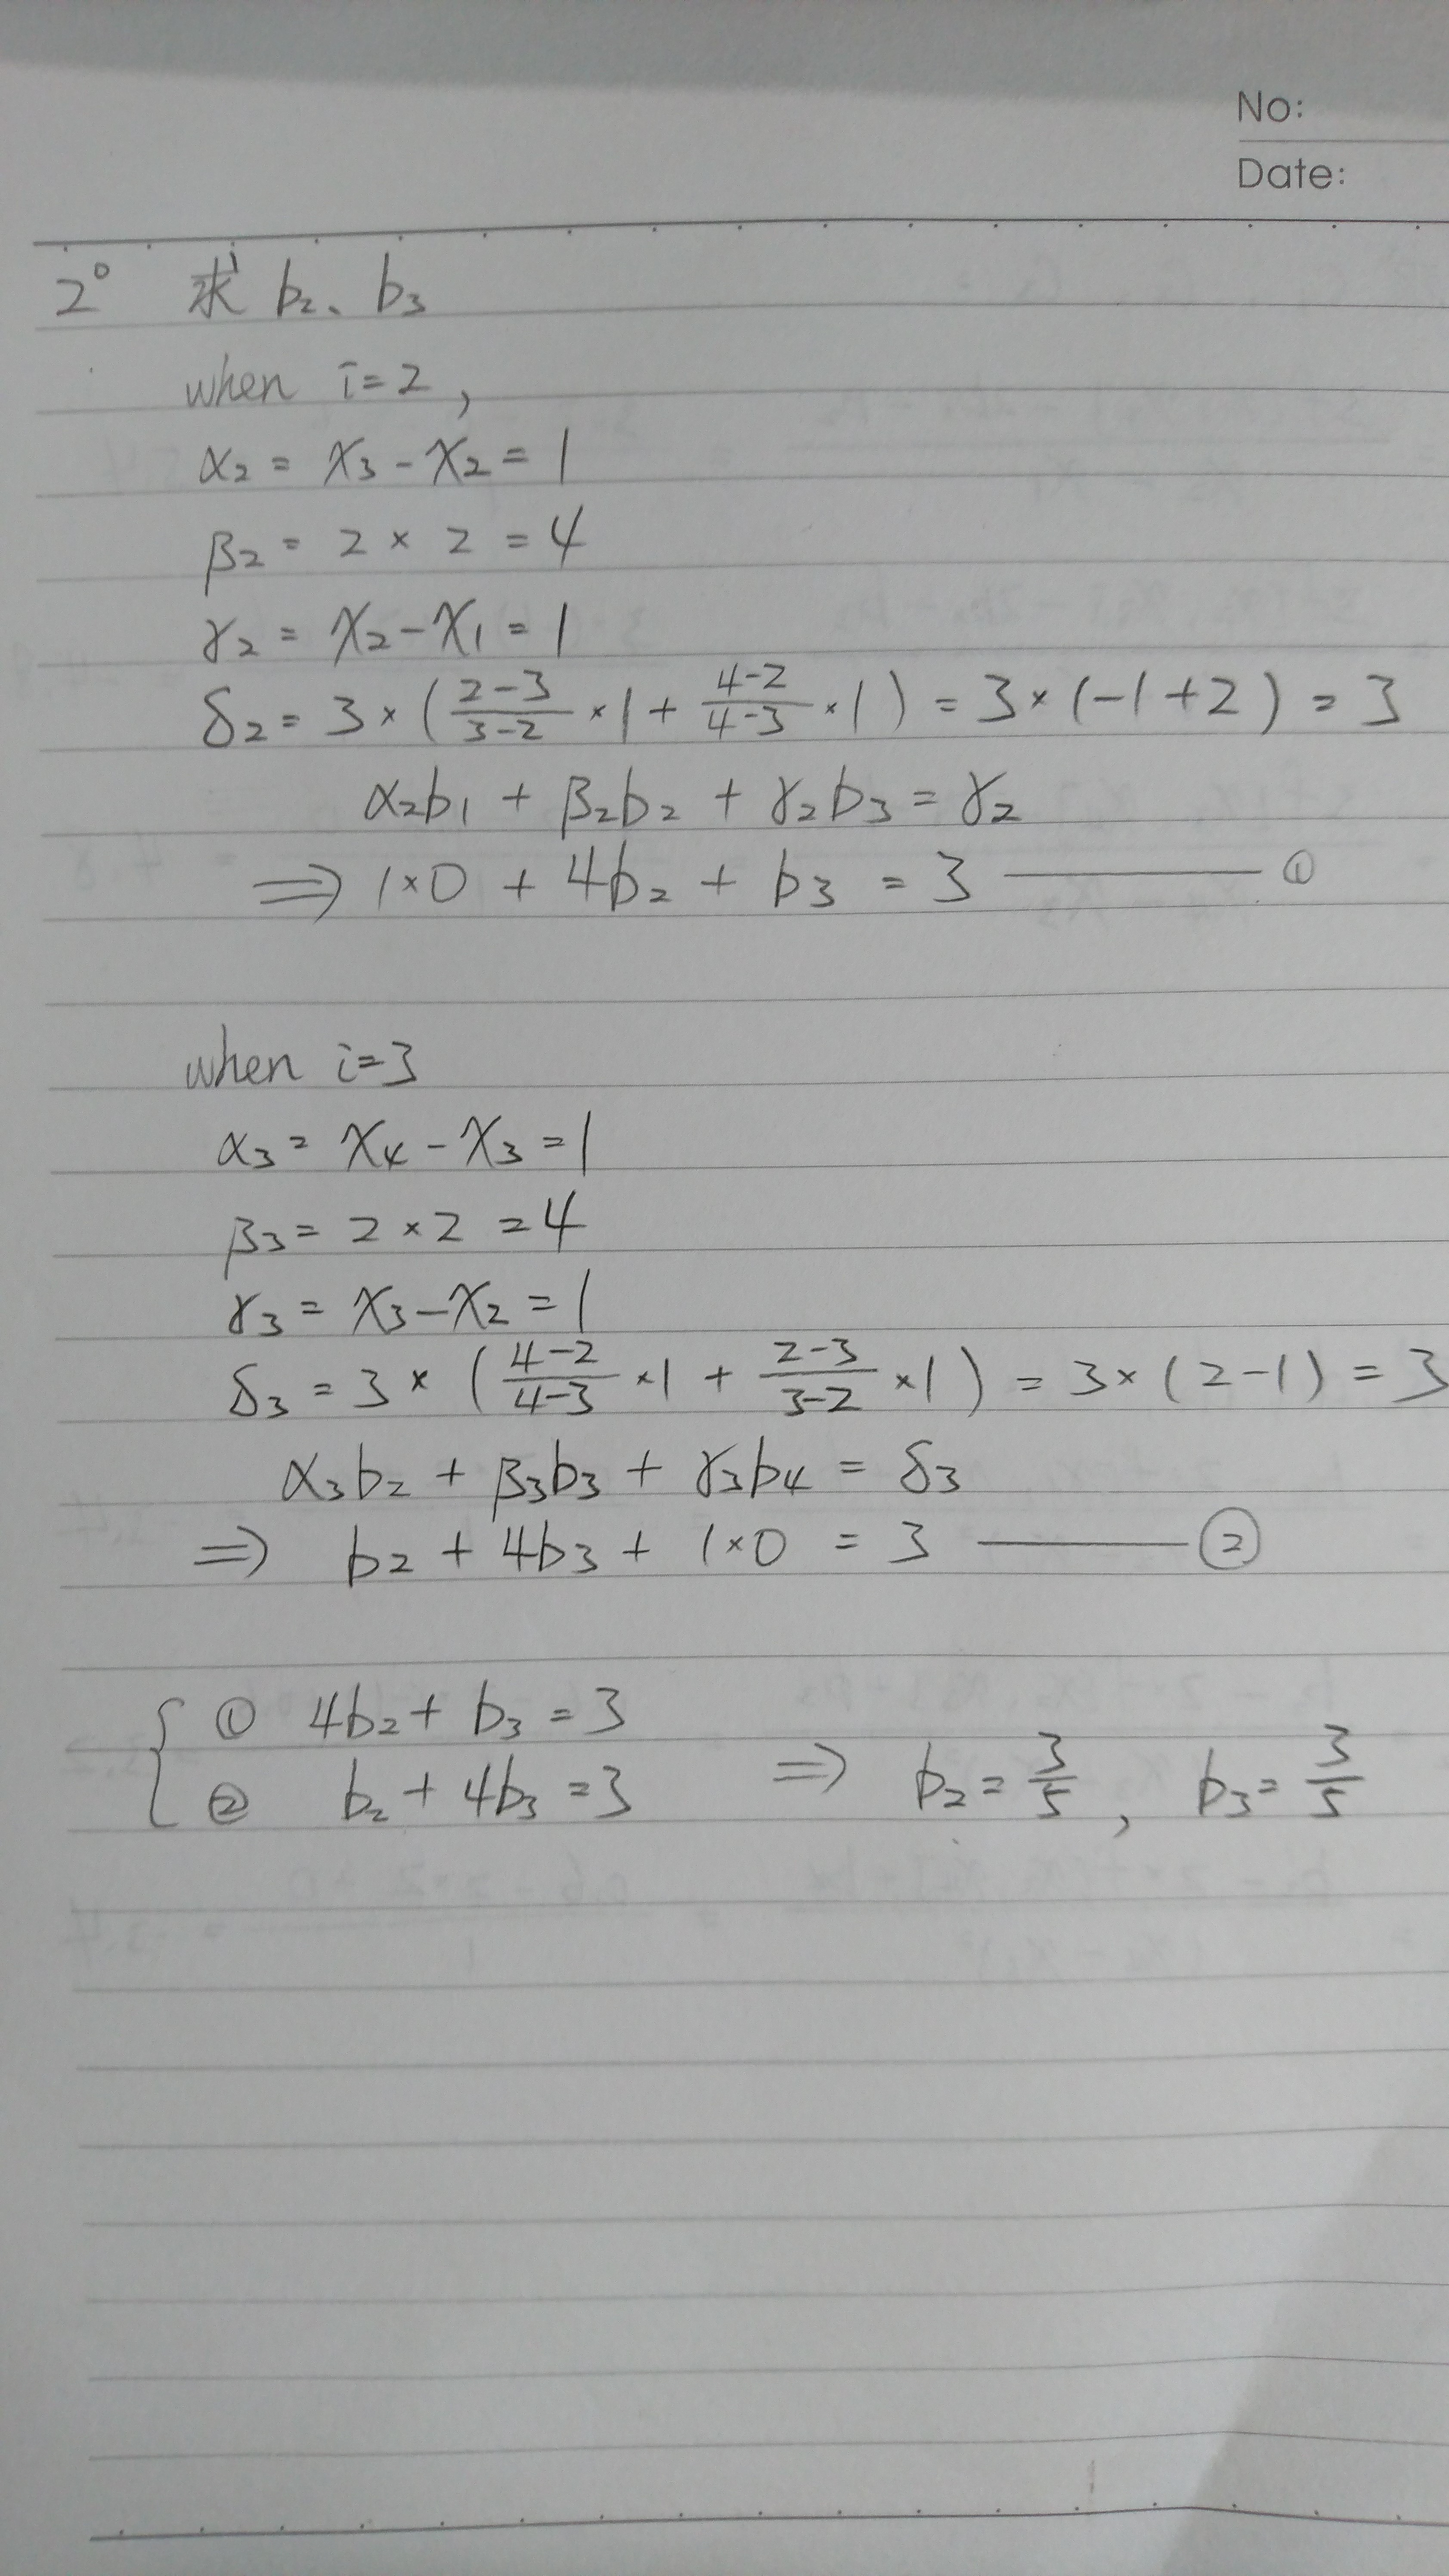 No:
Date:
2° 求 b₂、b₃
when i=2,
α₂ = x₃ - x₂ = 1
β₂ = 2 × 2 = 4
γ₂ = x₂ - x₁ = 1
δ₂ = 3 × ( (2-3)/(3-2) × 1 + (4-2)/(4-3) × 1 ) = 3 × (-1+2) = 3
α₂b₁ + β₂b₂ + γ₂b₃ = γ₂
⇒ 1×0 + 4b₂ + b₃ = 3 —— ①
when i=3
α₃ = x₄ - x₃ = 1
β₃ = 2 × 2 = 4
γ₃ = x₃ - x₂ = 1
δ₃ = 3 × ( (4-2)/(4-3) × 1 + (2-3)/(3-2) × 1 ) = 3 × (2-1) = 3
α₃b₂ + β₃b₃ + γ₃b₄ = δ₃
⇒ b₂ + 4b₃ + 1×0 = 3 —— ②
{ ① 4b₂ + b₃ = 3
② b₂ + 4b₃ = 3 ⇒ b₂ = 3/5 , b₃ = 3/5